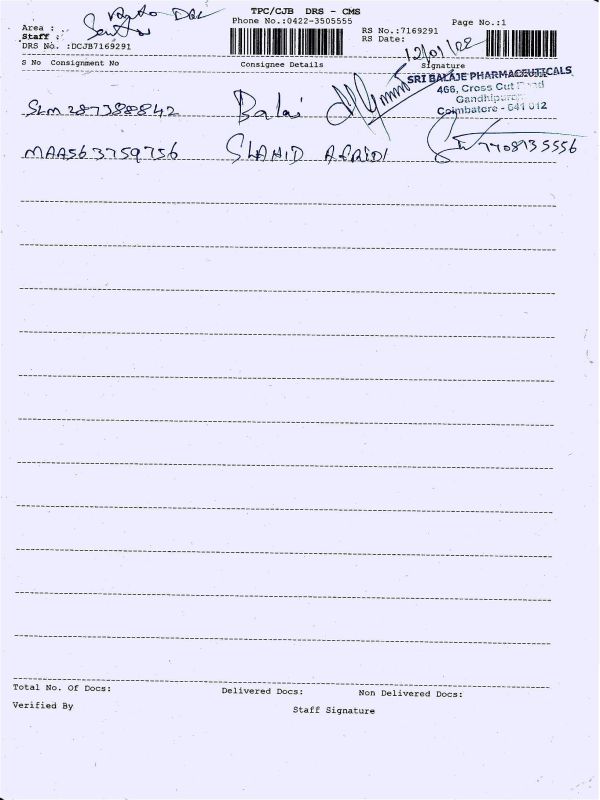 TPC/CJB DRS - CMS
Area :
Phone No.:0422-3505555
Page No.:1
Staff :
RS No.:7169291
DRS No. :DCJB7169291
RS Date: 12/01/22
S No Consignment No Consignee Details Signature
SRI BALAJE PHARMACEUTICALS
466, Cross Cut Road
Gandhipuram
Coimbatore - 641 012
SLM287388842 Balaji
MAA563759756 SHAHID AFRIDI 7708735556
Total No. Of Docs: Delivered Docs: Non Delivered Docs:
Verified By Staff Signature